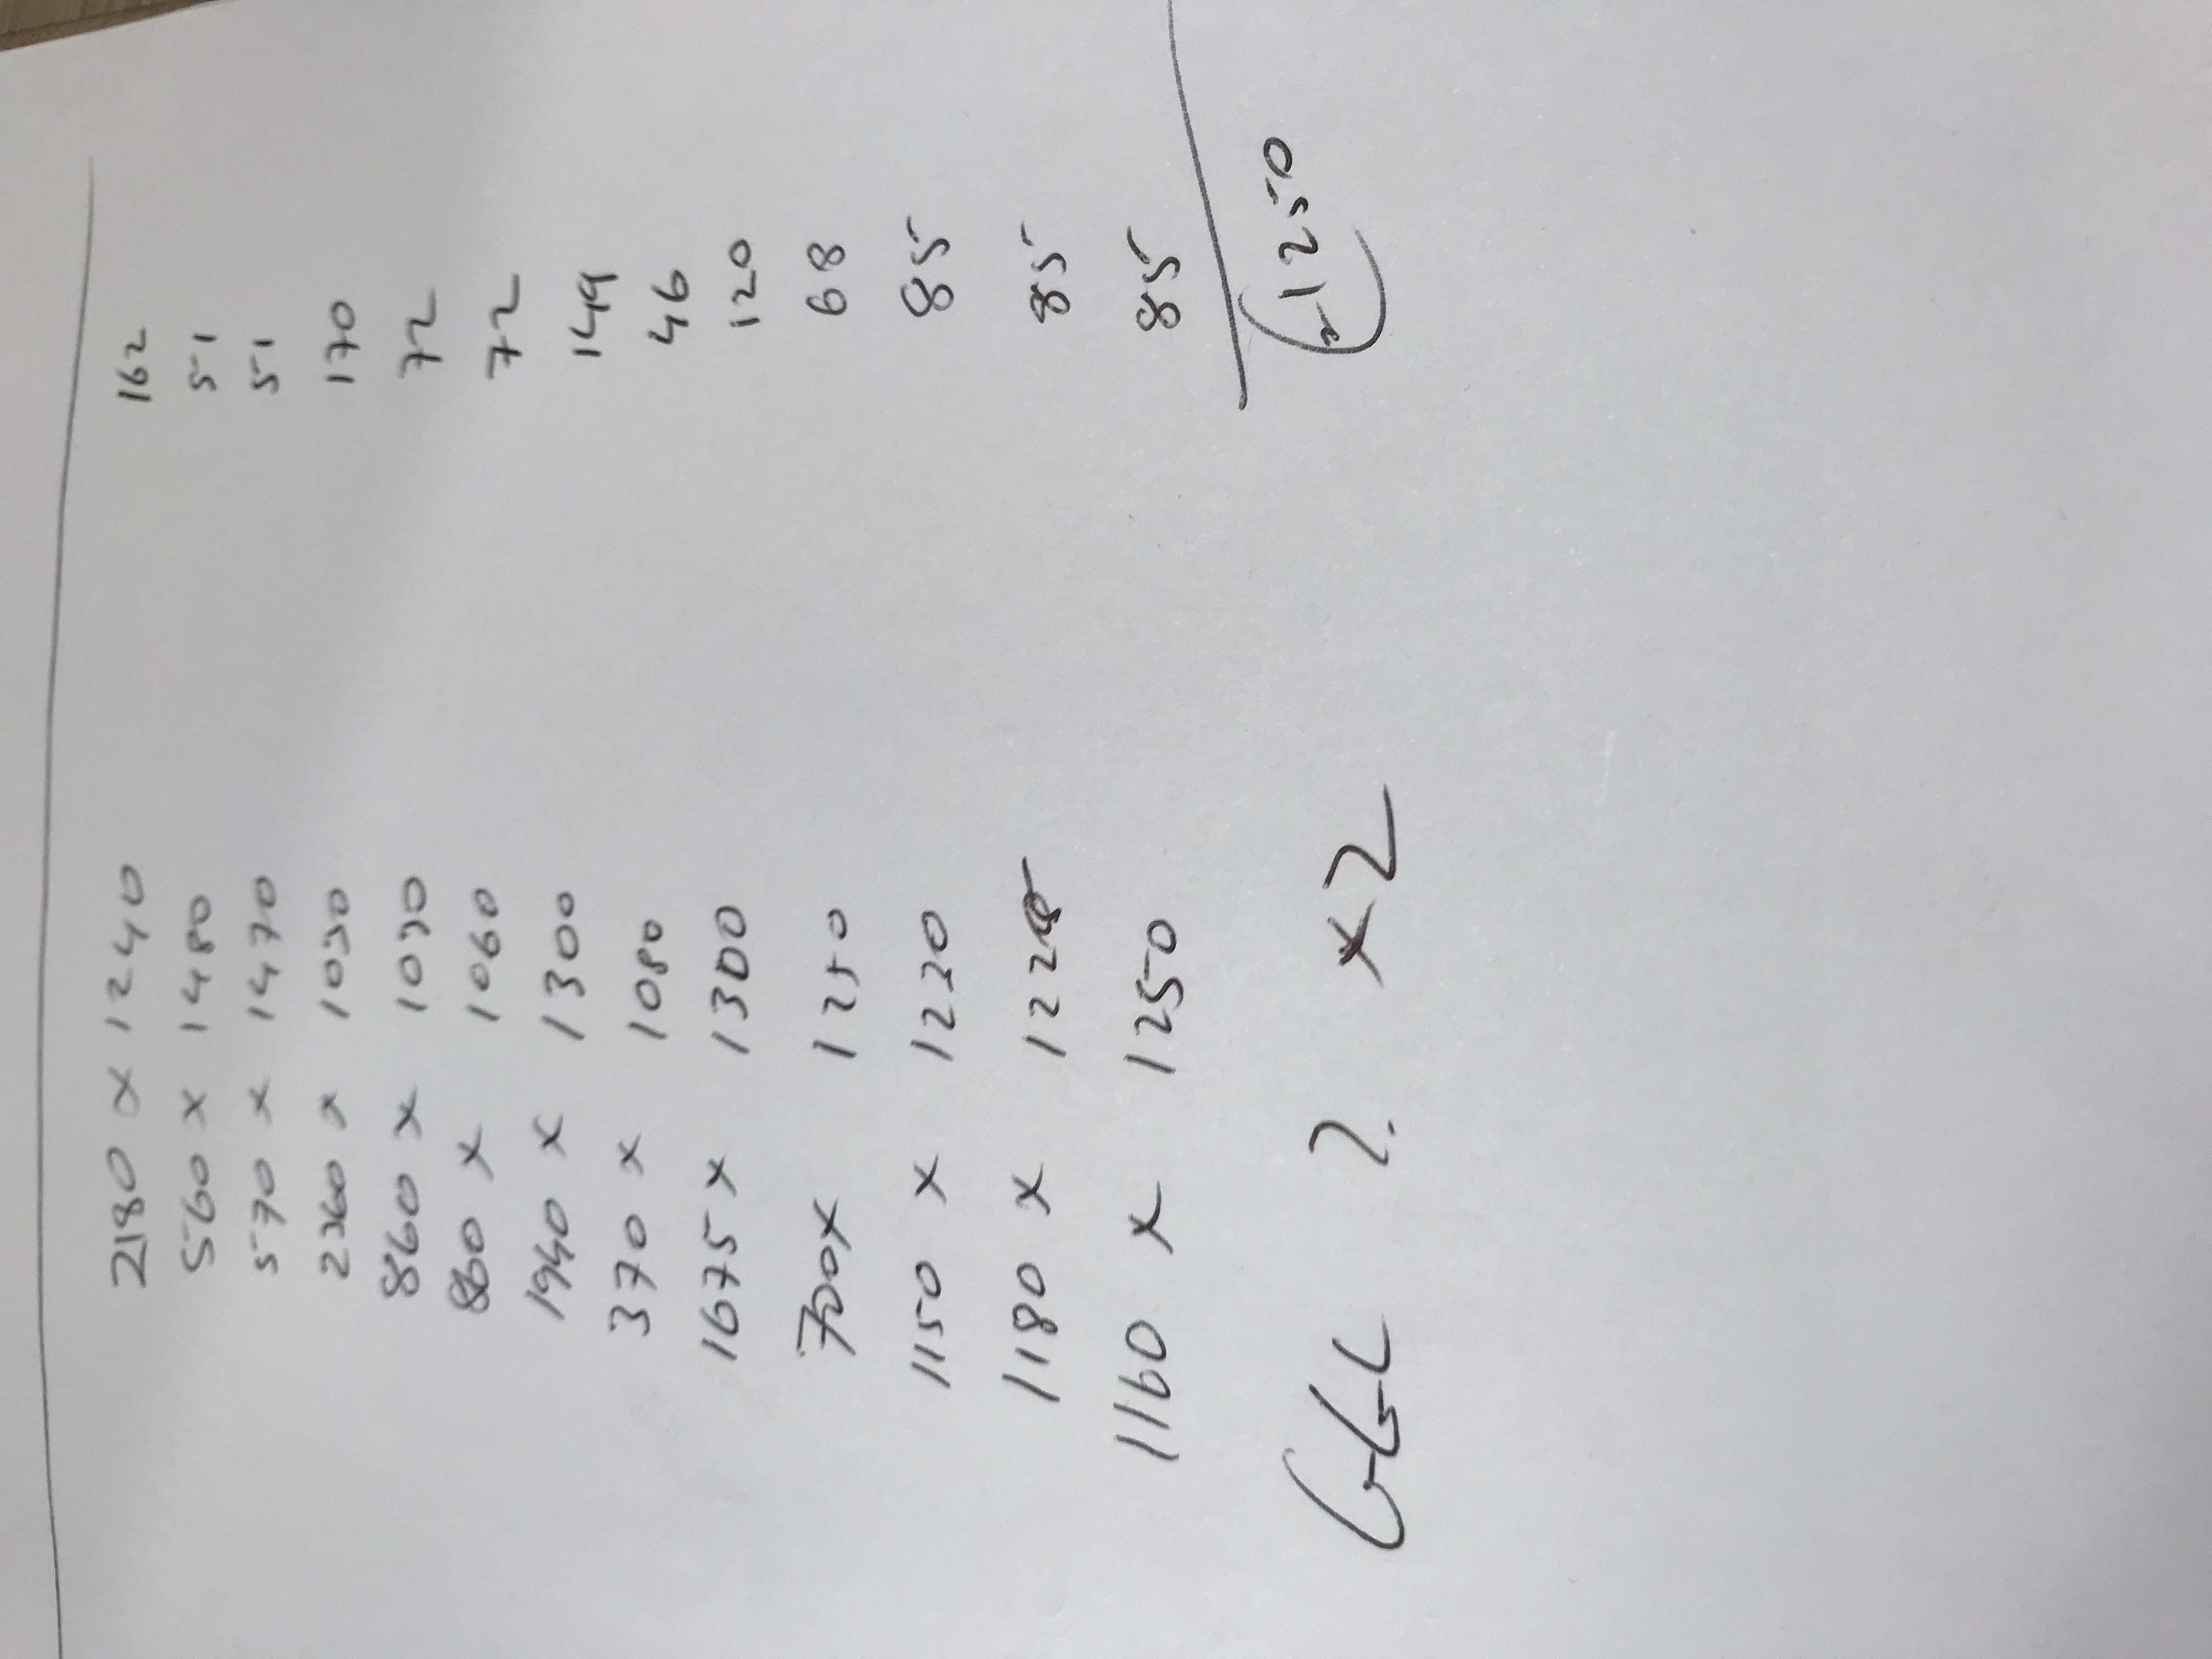 2180 x 1240 162
560 x 1480 51
570 x 1470 51
2360 x 1030 170
860 x 1030 72
860 x 1060 72
1940 x 1300 149
370 x 1080 46
1675 x 1300 120
700 x 1250 68
1150 x 1230 85
1180 x 1225 85
1160 x 1250 85
1250
x2